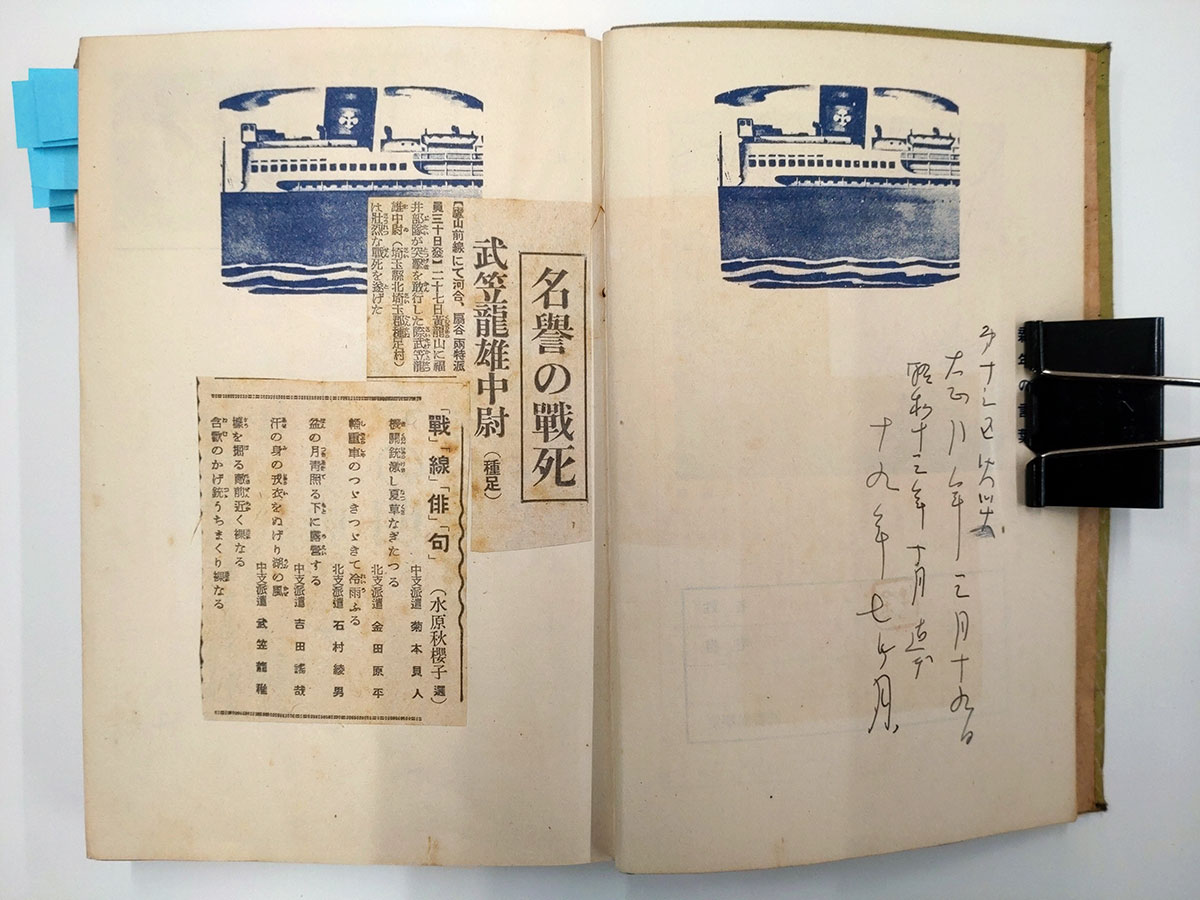 大正八年三月十九日
昭和十三年十月
十九年七ケ月
名譽の戰死
武笠龍雄中尉(種足)
【廬山前線にて河合、扇谷兩特派
員三十日發】二十七日黃龍山に福
井部隊が突擊を敢行した際武笠龍
雄中尉(埼玉縣北埼玉郡種足村)
は壯烈な戰死を遂げた
「戰」「線」「俳」「句」(水原秋櫻子選)
中支派遣 菊本貝人
機關銃激し夏草なぎたつる
北支派遣 金田原平
輜重車のつゞきつゞきて冷雨ふる
北支派遣 石村綾男
盆の月靑照る下に露營する
中支派遣 吉田謠哉
汗の身の戎衣をぬげり湖の風
中支派遣 武笠龍雄
壕を掘る敵前近く裸なる
合歡のかげ銃うちまくり裸なる